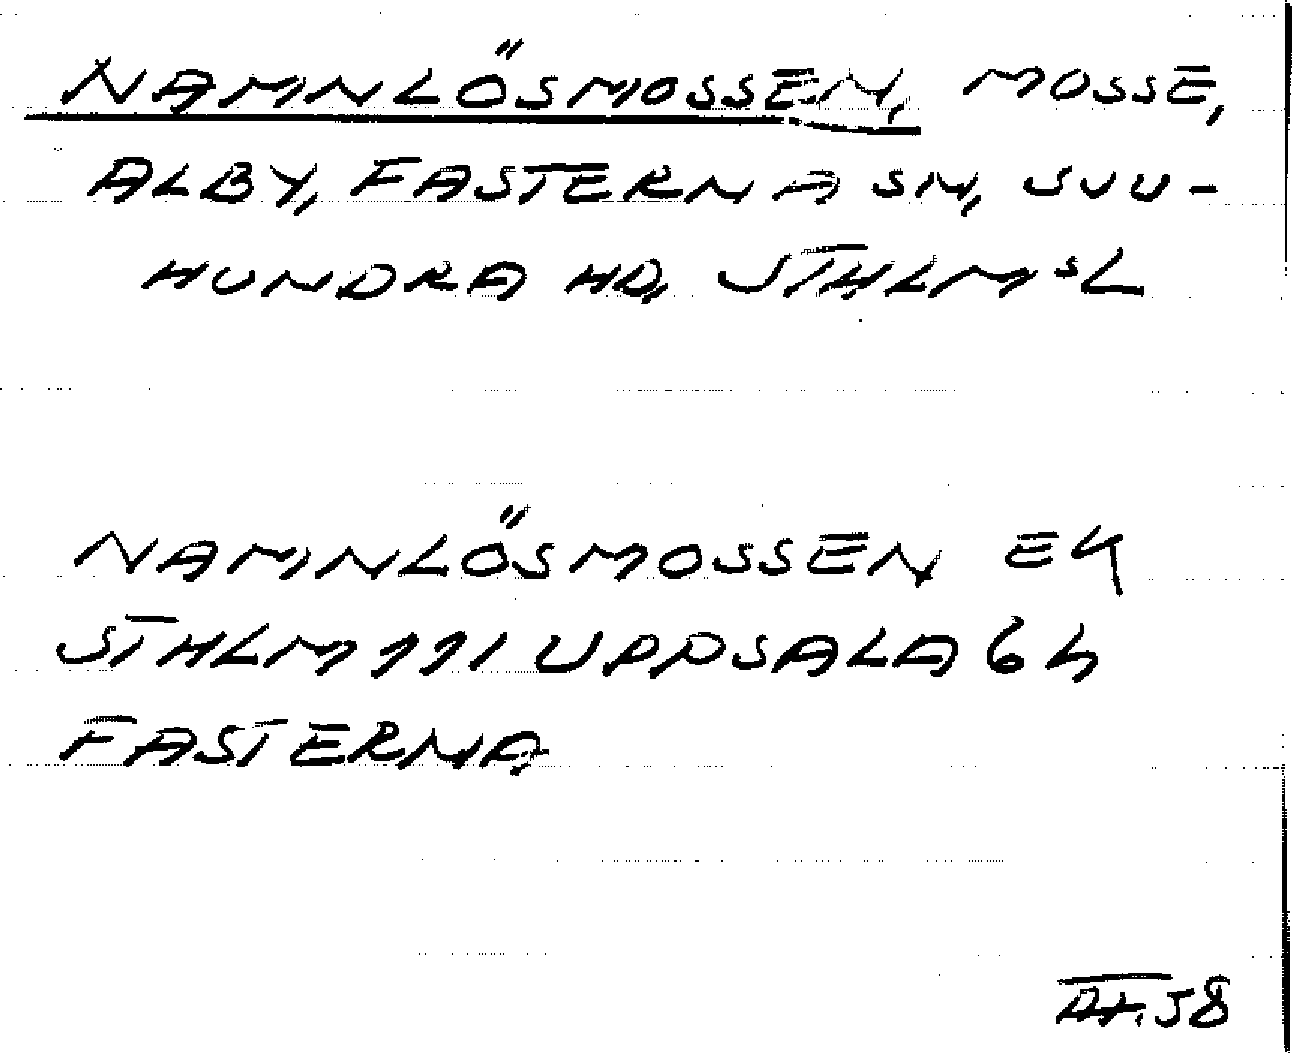 NAMNLÖSMOSSEN, MOSSE,
ALBY, FASTERNA SN, SJU-
HUNDRA HD, STHLMSL
NAMNLÖSMOSSEN EK
STHLM 111 UPPSALA 6 h
FASTERNA